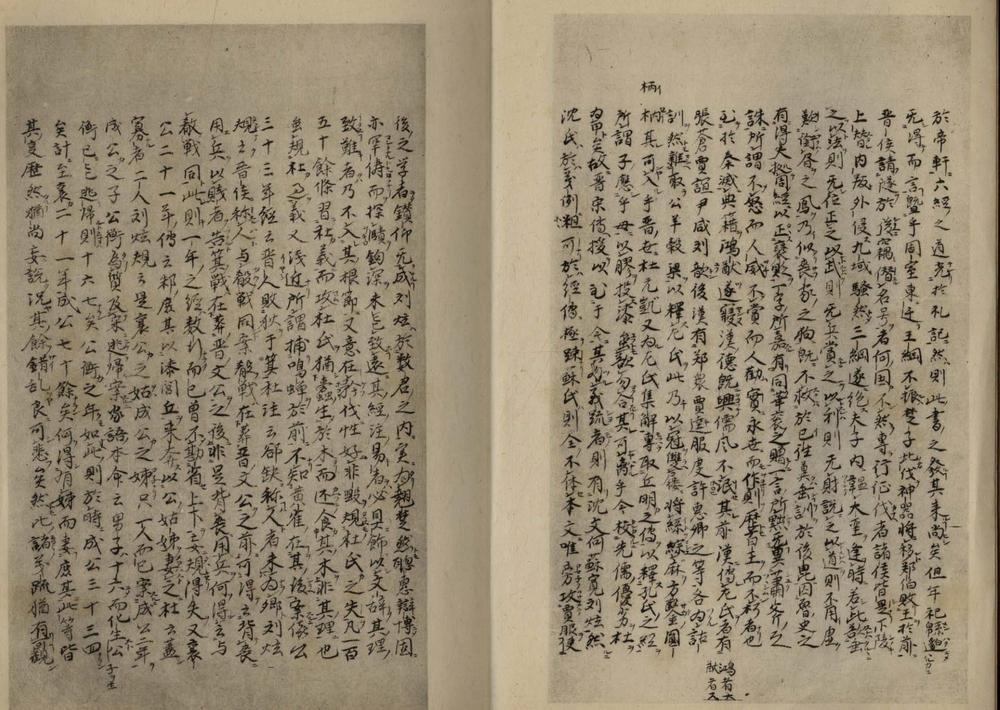 柄
於帝軒六經之道光於礼記然則此書之發其来尚矣但年祀緜邈
无得而言曁乎周室東迁王綱不振楚子北伐神器將移鄭伯敗王於前
晋侯請隧於後竊僭名号者何国不然專行征伐者諸侯皆是下陵
上替内叛外侵九域騷然三綱遂絶夫子内韞大聖逢時若此欲垂
之以法則无位正之以武則无兵賞之以利則无財説之以道則不用虚
歎銜書之鳳乃似喪家之狗既不救於已往冀垂訓於後昆因魯史之
有得失據周経以正褒貶一字所嘉有同華衮之贈一言所黜无異蕭斧之
誅所謂不怒而人威不賞而人勸實永世而作則歴百王而不朽者也
至於秦滅典籍鴻猷遂寝漢德既興儒風不泯其前漢傳左氏者有
張蒼賈誼尹咸刘歆後漢有郑衆賈逵服虔許惠卿之等各為詁
訓然雜取公羊穀梁以釋左氏此乃以冠雙屨將絲綜麻方鑿圓
枘其可入乎晋世杜元凱又為左氏集解專取丘明之傳以釋孔氏之経
所謂子應乎母以膠投漆雖欲勿合其可離乎今校先儒優劣杜
為甲矣故晋宋傳授以至于今其為義疏者則有沈文何蘇寛刘炫然
沈氏於義例粗可於経傳極踈蘇氏則全不体本文唯旁攻賈服使
鴻者大
猷者又
後之学者鑽仰无成刘炫於数君之内実為翹楚然聰恵辯博固
亦罕儔而探賾鈎深未能致遠其経注易者必具飾以文辞其理
致難者乃不入其根節又意在矜伐性好非毀規杜氏之失凡一百
五十餘條習杜義而攻杜氏猶蠹生於木而还食其木非其理也
虽規杜過義又浅近所謂捕鳴蝉於前不知黄雀在其後案僖公
三十三年経云晋人敗狄于箕杜注云郤缺称人者未為卿刘炫
規云晋侯称人与殽戦同案殽戦在葬晋文公之前可得云背喪
用兵以賤者告箕戦在葬晋文公之後非是背喪用兵何得云与
殽戦同此則一年之経数行而已曾不勘省上下妄規得失又襄
公二十一年傳云邾庶其以漆閭丘来奔以公姑姊妻之杜云蓋
寡者二人刘炫規云是襄公之姑成公之姊只一人而已案成公二年
成公之子公衡為質及宋逃歸案家語本命云男子十六而化生公
衡已能逃歸則十六七矣公衡之年如此則於時成公三十三四
矣計至襄二十一年成公七十餘矣何得有姊而妻庶其此等皆
其事歴然猶尚妄説况其餘錯乱良可悲矣然此諸義疏猶有可觀